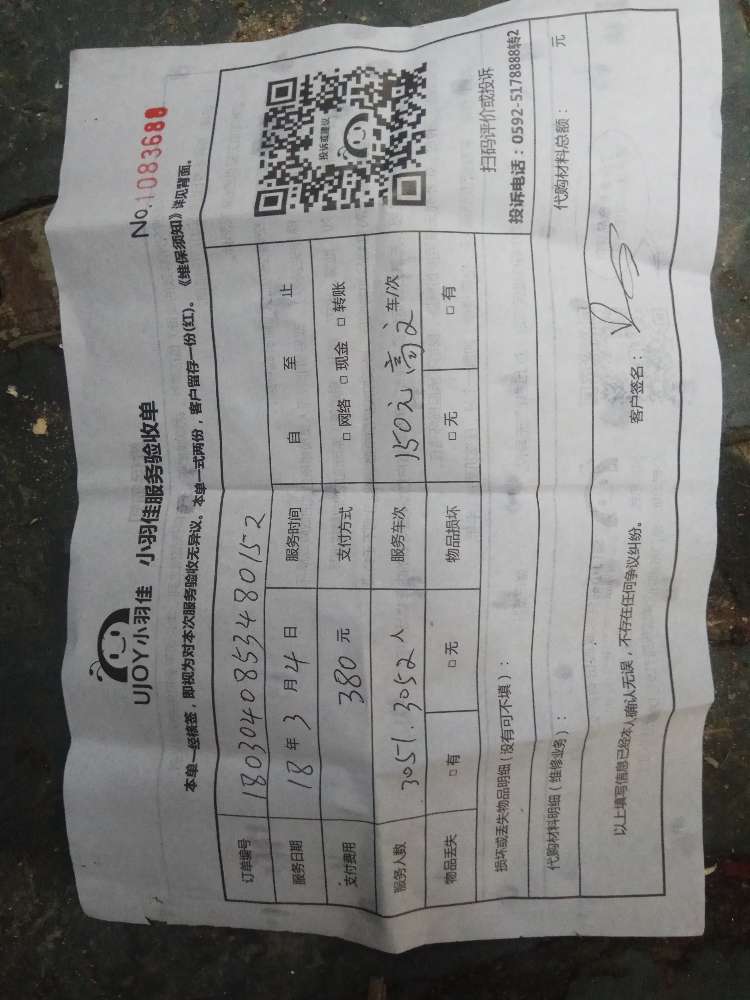 UJOY小羽佳 小羽佳服务验收单
No.1083688
本单一经核签，即视为对本次服务验收无异议。本单一式两份，客户留存一份(红)。《维保须知》详见背面。
订单编号 1803040853480152
服务日期 18年3月4日 服务时间 自 至 止
支付费用 380元 支付方式 □网络 □现金 □转账
服务人数 3051.3052人 服务车次 150元 车/次
物品丢失 □有 □无 物品损坏 □无 □有
投诉或建议
扫码评价或投诉
投诉电话：0592-5178888转2
损坏或丢失物品明细(没有可不填)：
代购材料明细(维修业务)： 代购材料总额： 元
以上填写信息已经本人确认无误，不存在任何争议纠纷。 客户签名：